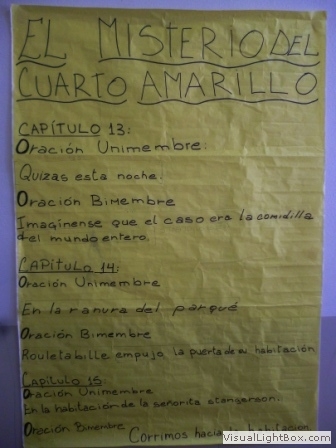 EL MISTERIO DEL
CUARTO AMARILLO
CAPÍTULO 13:
Oración Unimembre:
Quizas esta noche.
Oración Bimembre
Imagínense que el caso era la comidilla
del mundo entero.
CAPÍTULO 14:
Oración Unimembre
En la ranura del parqué
Oración Bimembre
Rouletabille empujo la puerta de su habitación
Capítulo 15:
Oración Unimembre
En la habitación de la señorita stangerson.
Oración Bimembre
Corrimos hacia la habitación
VisualLightBox.com